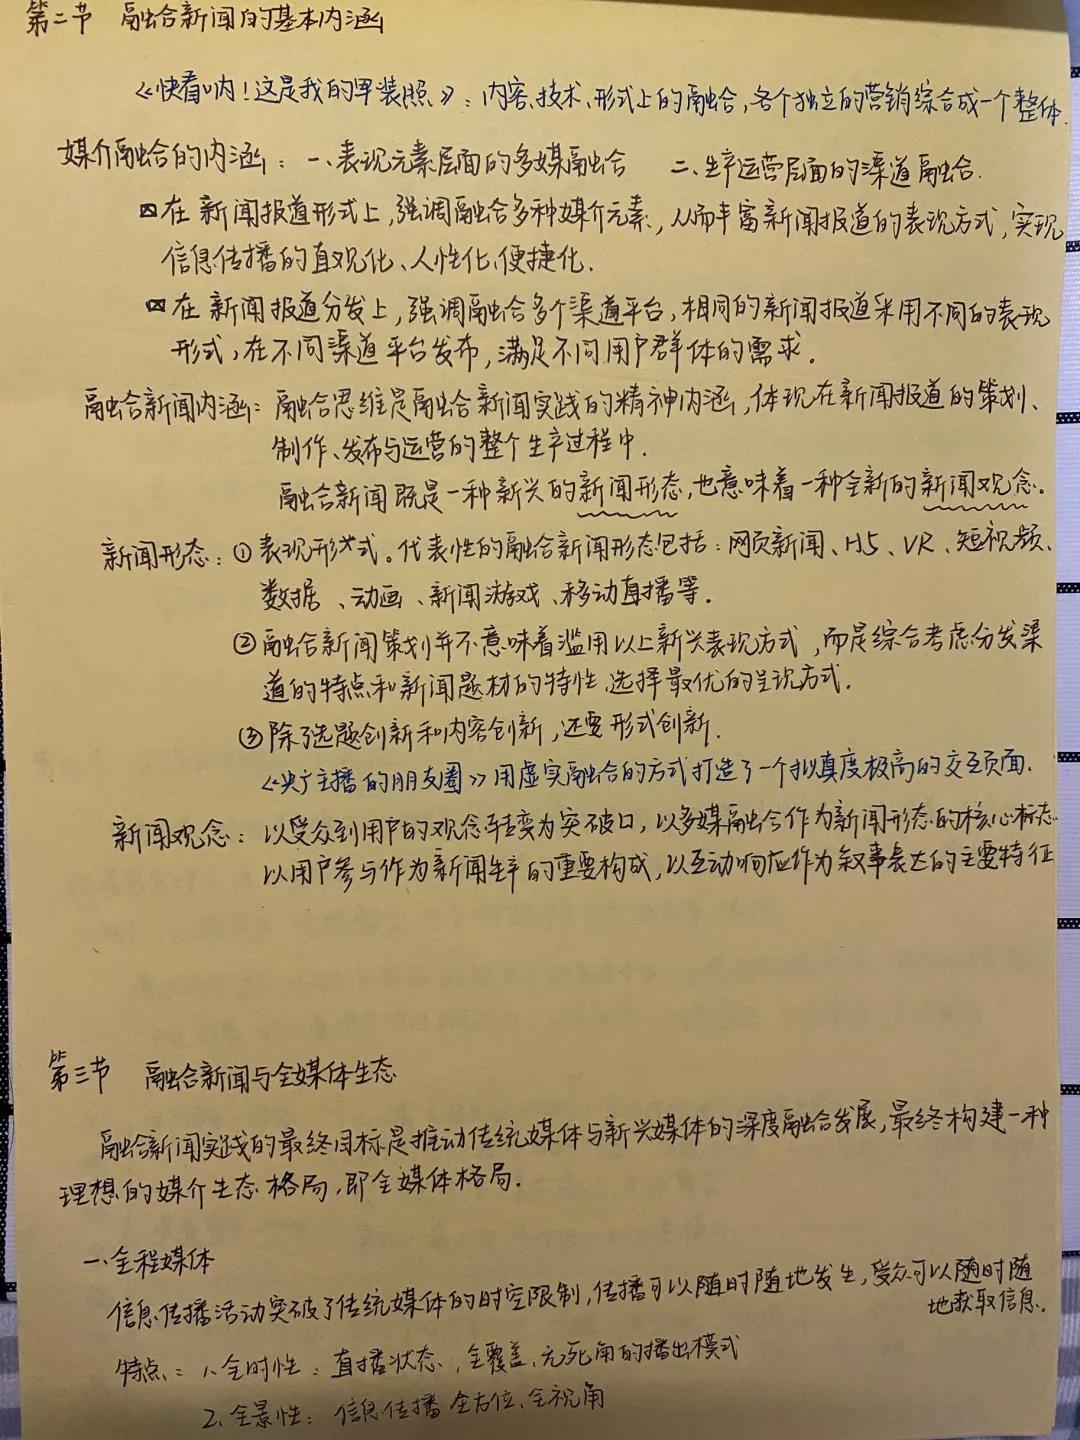 第二节 融合新闻的基本内涵
《快看呐!这是我的军装照》:内容、技术、形式上的融合,各个独立的营销综合成一个整体.
媒介融合的内涵:一、表现元素层面的多媒融合 二、生产运营层面的渠道融合.
在新闻报道形式上,强调融合多种媒介元素,从而丰富新闻报道的表现方式,实现
信息传播的直观化、人性化、便捷化.
在新闻报道分发上,强调融合多个渠道平台,相同的新闻报道采用不同的表现
形式,在不同渠道平台发布,满足不同用户群体的需求.
融合新闻内涵:融合思维是融合新闻实践的精神内涵,体现在新闻报道的策划、
制作、发布与运营的整个生产过程中.
融合新闻既是一种新兴的新闻形态,也意味着一种全新的新闻观念.
新闻形态:①表现形式。代表性的融合新闻形态包括:网页新闻、H5、VR、短视频、
数据、动画、新闻游戏、移动直播等.
②融合新闻策划并不意味着滥用以上新兴表现方式,而是综合考虑分发渠
道的特点和新闻题材的特性,选择最优的呈现方式.
③除了选题创新和内容创新,还要形式创新.
《央广主播的朋友圈》用虚实融合的方式打造了一个拟真度极高的交互页面.
新闻观念:以受众到用户的观念转变为突破口,以多媒融合作为新闻形态的核心标志
以用户参与作为新闻生产的重要构成,以互动响应作为叙事表达的主要特征
第三节 融合新闻与全媒体生态
融合新闻实践的最终目标是推动传统媒体与新兴媒体的深度融合发展,最终构建一种
理想的媒介生态格局,即全媒体格局.
一、全程媒体
信息传播活动突破了传统媒体的时空限制,传播可以随时随地发生,受众可以随时随
地获取信息.
特点:1、全时性:直播状态,全覆盖、无死角的播出模式
2、全景性:信息传播全方位、全视角